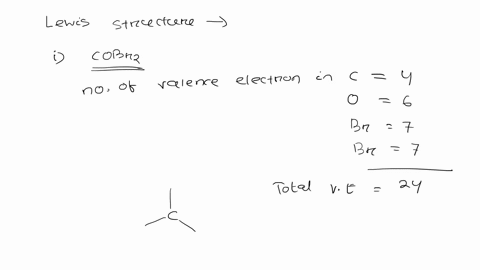 Lewis structure →
i) COBr2
no. of valence electron in C = 4
O = 6
Br = 7
Br = 7
Total v.E = 24
C